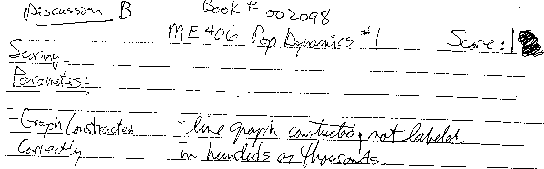 Discussion B Book # 002098
ME406 Pop Dynamics #1 Score: 1
Scoring
Parameters:
- Graph Constructed - line graph constructed, not labeled
Correctly in hundreds or thousands